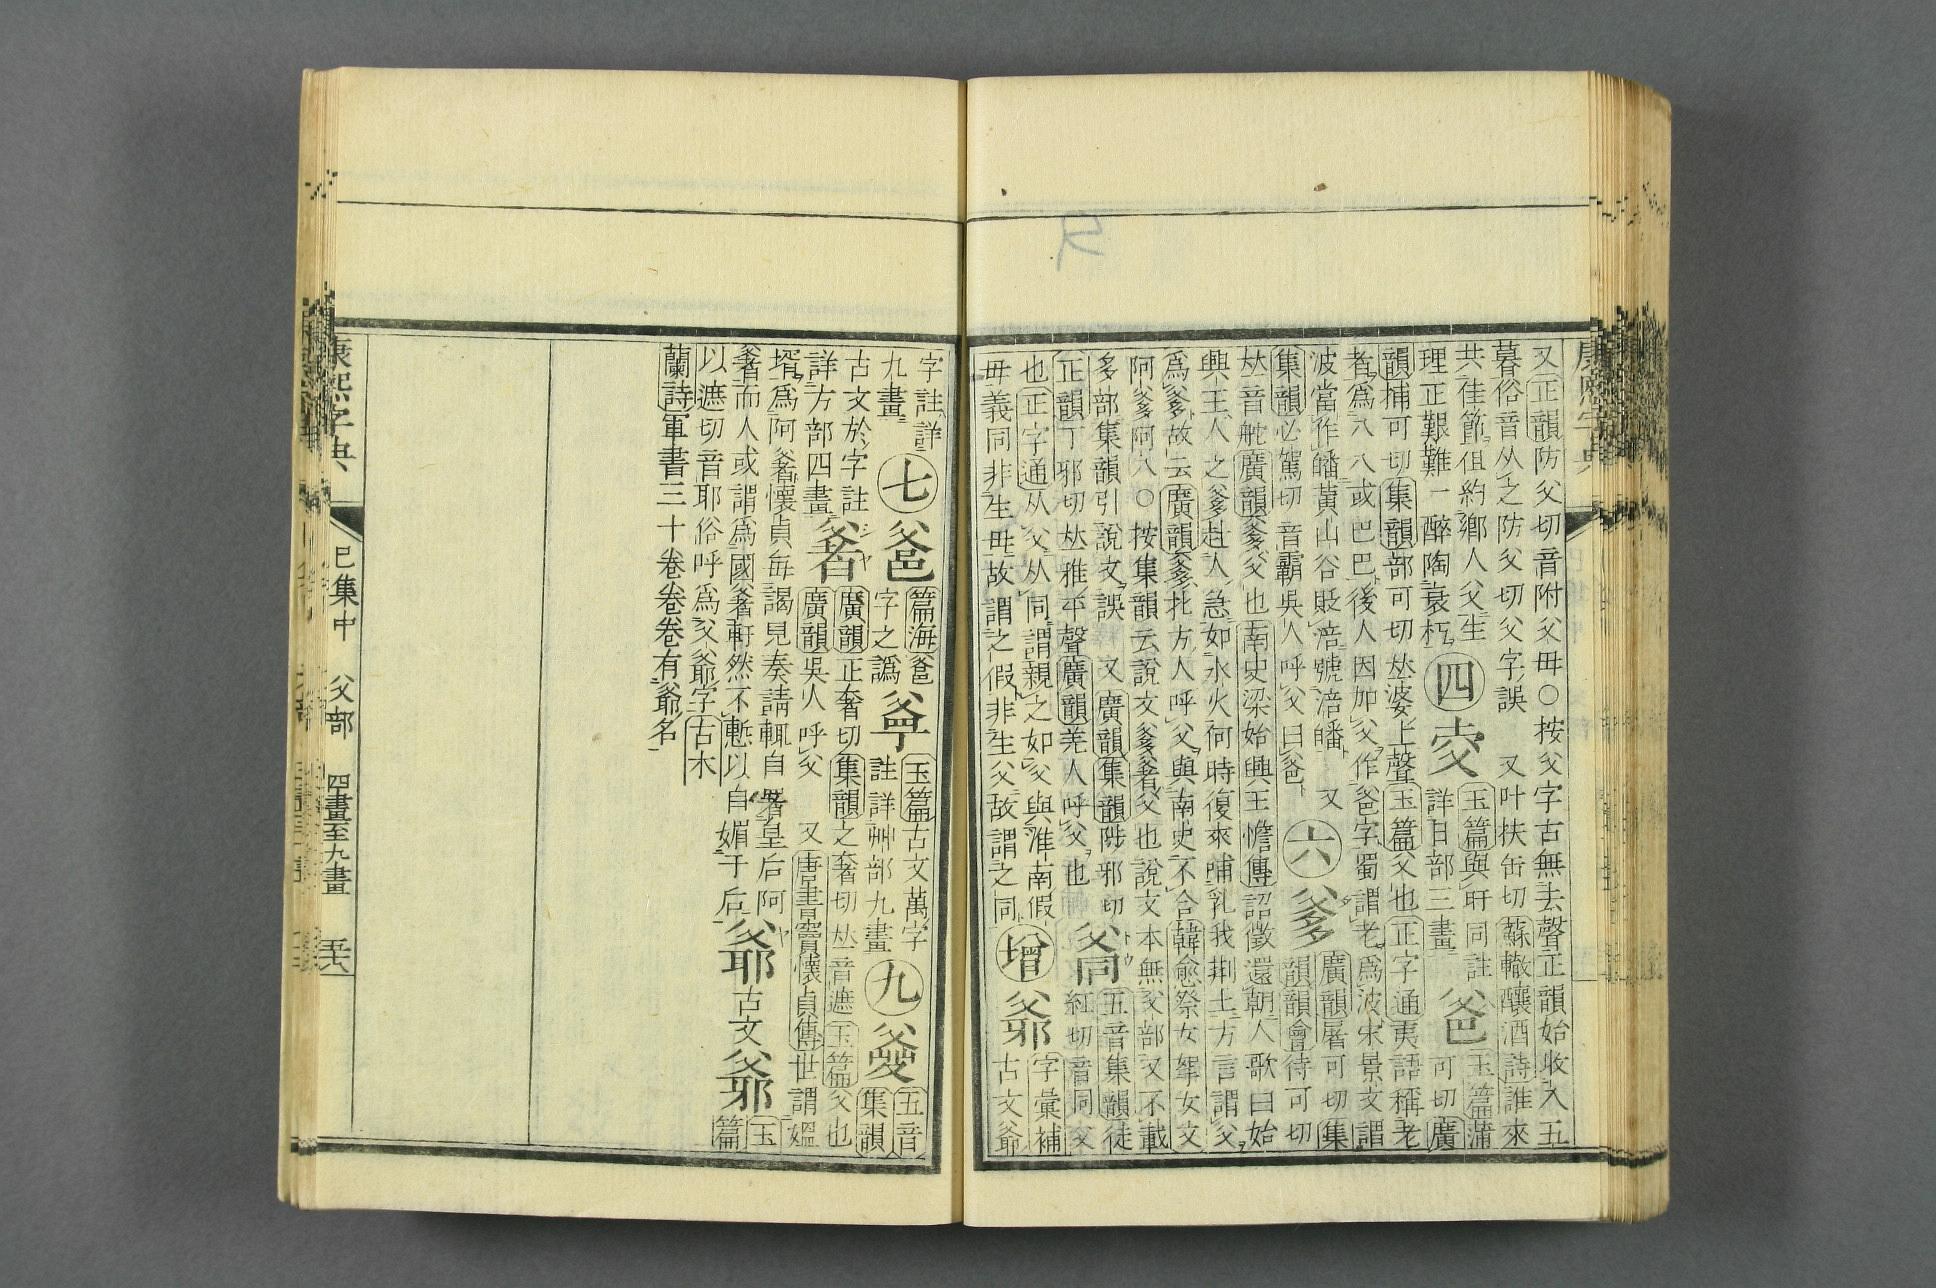 又正韻防父切音附父母〇按父字古無去聲正韻始收入五
暮俗音从之防父切父字誤 又叶扶缶切蘇轍釀酒詩誰來
共佳節但約鄉人父生
理正艱難一醉陶衰朽
四
㸙
玉篇與㫄同註
詳日部三畫
爸
玉篇蒲
可切廣
韻捕可切集韻部可切𠀤婆上聲玉篇父也正字通夷語稱老
者爲八八或巴巴後人因加父作爸字蜀謂老爲波宋景文謂
波當作皤黃山谷貶涪號涪皤 又
集韻必駕切音霸吳人呼父曰爸
六
爹
廣韻屠可切集
韻韻會待可切
𠀤音舵廣韻爹父也南史梁始興王憺傳詔徵還朝人歌曰始
興王人之爹赴人急如水火何時復來哺乳我荆土方言謂父
爲爹故云廣韻爹北方人呼父與南史不合韓愈祭女挐女文
阿爹阿八〇按集韻云說文爹奢父也說文本無父部又不載
多部集韻引說文誤 又廣韻集韻陟邪切
正韻丁邪切𠀤雅平聲廣韻羌人呼父也
𤕔
五音集韻徒
紅切音同父
也正字通从父从同謂親之如父與淮南假
母義同非生母故謂之假非生父故謂之同
增
𤕓
字彙補
古文爺
字註詳
九畫
七
篇海爸
字之譌
玉篇古文萬字
註詳艸部九畫
九
五音
集韻
古文於字註
詳方部四畫
𤕙
廣韻正奢切集韻之奢切𠀤音遮玉篇父也
廣韻吳人呼父 又唐書竇懷貞傳世謂媼
壻爲阿𤕙懷貞每謁見奏請輒自署皇后阿
𤕙而人或謂爲國𤕙軒然不慙以自媚于后
爺
古文
𤕓
玉
篇
以遮切音耶俗呼爲父爺字古木
蘭詩軍書三十卷卷卷有爺名
康熙字典
巳集中 父部 四畫至九畫 五六